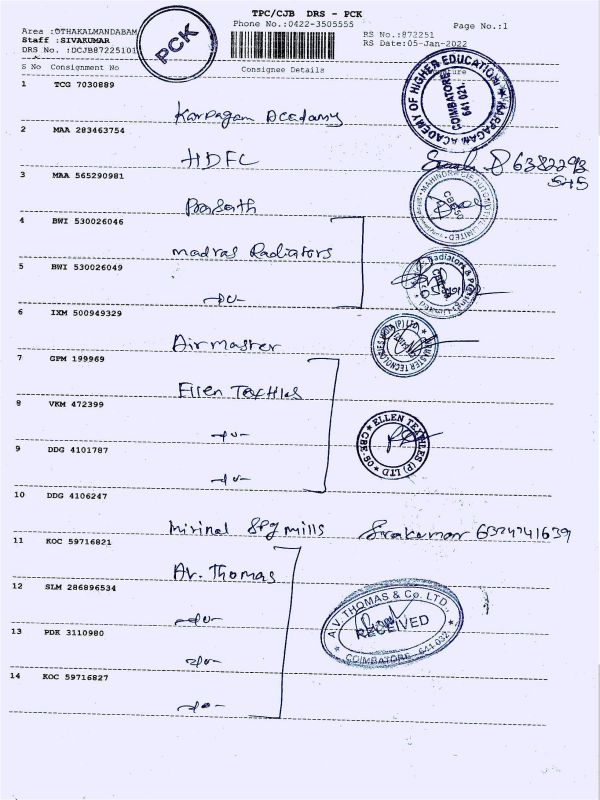 TPC/CJB DRS - PCK
Phone No.:0422-3505555
Page No.:1
Area :OTHAKALMANDABAM
Staff :SIVAKUMAR
DRS No. :DCJB87225101
PCK
RS No.:872251
RS Date:05-Jan-2022
S No Consignment No Consignee Details
1 TCG 7030889
Karpagam Academy
KARPAGAM ACADEMY OF HIGHER EDUCATION
COIMBATORE
641 021
2 MAA 283463754
HDFC
3 MAA 565290981
Prasath
MAHINDRA CIE AUTOMOTIVE LIMITED
4 BWI 530026046
madras Radiators
5 BWI 530026049
-do-
Radiators &
6 IXM 500949329
Airmaster
7 GPM 199969
Ellen Textiles
8 VKM 472399
-do-
ELLEN TEXTILES (P) LTD
CBE-08
9 DDG 4101787
-do-
10 DDG 4106247
mills Sivakumar
11 KOC 59716821
Av. Thomas
12 SLM 286896534
-do-
A.V. THOMAS & Co. LTD.,
RECEIVED
COIMBATORE - 641 032
13 PDK 3110980
-do-
14 KOC 59716827
-do-